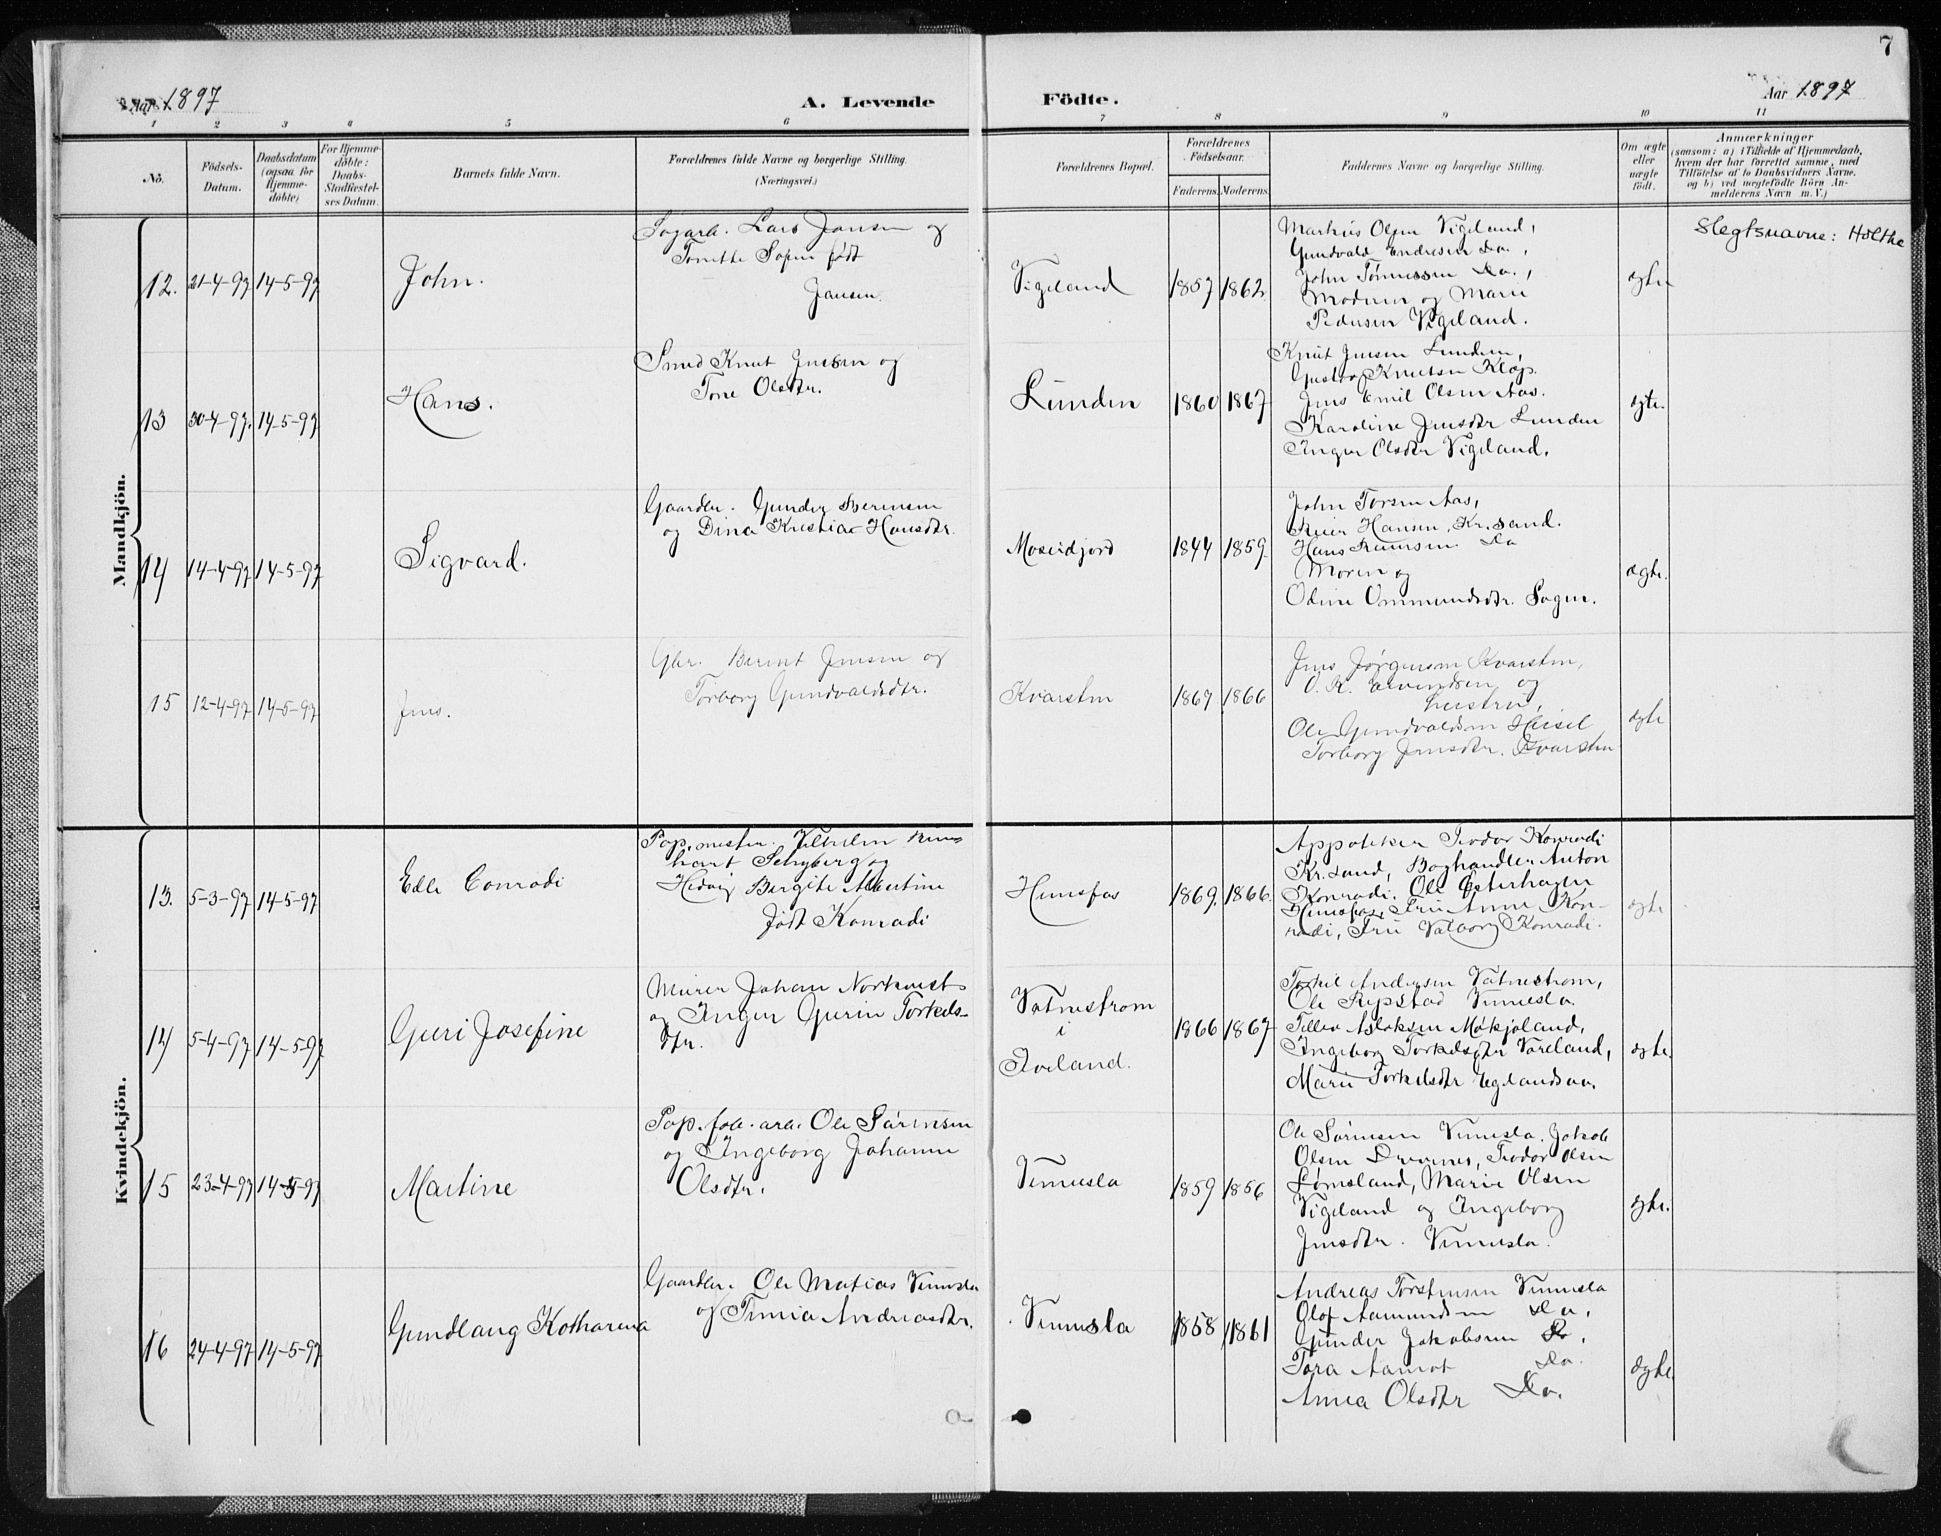 7
Aar 1897
A. Levende
Födte.
Aar 1897
1 2 3 4 5 6 7 8 9 10 11
No.
Födsels-
Datum.
Daabsdatum
(ogsaa for
Hjemme-
döbte)
For Hjemme-
döbte:
Daabs-
Stadfæstel-
ses Datum.
Barnets fulde Navn.
Forældrenes fulde Navne og borgerlige Stilling.
(Næringsvei.)
Forældrenes Bopæl.
Forældrenes
Födselsaar.
Faderens. Moderens.
Faddernes Navne og borgerlige Stilling.
Om ægte
eller
uægte
födt.
Anmærkninger
(saasom: a) i Tilfælde af Hjemmedaab,
hvem der har forrettet samme, med
Tilföielse af to Daabsvidners Navne.
og b) ved uægtefödte Börn An-
melderens Navn m. V.)
Mandkjön.
12. 21-4-97 14-5-97
John.
Sagarb. Lars Jansen og
Tonette Sofie født
Jansen.
Vigeland
1857 1862.
Markus Olsen Vigeland,
Gundvald Endresen Do.,
John Tønnessen Do.,
Moderen og Marie
Pedersen Vigeland.
ægte
Slegtsnavne: Holthe
13 30-4-97. 14-5-97
Hans.
Smed Knut Jensen og
Tone Olsdtr.
Lunden
1860 1867
Knut Jensen Lunden,
Gustav Knutsen Kløp.
Jens Emil Olsen Aas.
Karoline Jensdtr Lunden
Inger Olsdtr Vigeland.
ægte.
14 14-4-97 14-5-97
Sigvard.
Gaardbr. Gunder Berensen
og Dina Kristine Hansdtr.
Moseidjord
1844 1859.
John Torsen Aas,
Reier Hansen, Kr.sand.
Hans Reiersen Do
Moren og
Oline Ommundsdtr. Sagen.
ægte.
15 12-4-97 14-5-97
Jens.
Gbr. Berent Jensen og
Torborg Gundvaldsdtr.
Kvarsten
1867 1866
Jens Jørgensen Kvarsten,
O. K. Eivindsen og
hustru,
Ole Gundvaldsen Heisel
Torborg Jensdtr. Kvarsten
ægte
Kvindekjön.
13. 5-3-97 14-5-97
Edle Conradi
Pap. mester. Vilhelm
Schyberg og
Hedvig Birgite Martine
født Konradi
Hunsfos
1869. 1866.
Appoteker Teodor Konradi
Kr.sand, Boghandler Anton
Konradi. Ole Østerhagen
Hunsfos, Fru Anna Kon-
radi, Fru Valborg Konradi.
ægte
14 5-4-97 14-5-97
Guri Josefine
Murer Johan Norkvist
og Inger Gurine Torkels-
dtr.
Vatnestrøm
i
Iveland.
1866 1867
Torkel Andersen Vatnestrøm,
Ole Ripstad Vennesla
Tellev Aslaksen Møkjøland,
Ingeborg Torkelsdtr Vareland,
Marie Torkelsdtr Eglandsaa.
ægte.
15 23-4-97 14-5-97
Martine
Pap. fab. arb. Ole Sørensen
og Ingeborg Johanne
Olsdtr.
Vennesla
1859 1856
Ole Sørensen Vennesla, Jakob
Olsen Drivenes, Teodor Olsen
Lømsland, Marie Olsen
Vigeland og Ingeborg
Jensdtr. Vennesla.
ægte.
16 24-4-97 14-5-97
Gundlaug Katharina
Gaardbr. Ole Matias Vennesla
og Tomia Andreasdtr.
Vennesla
1858 1861
Andreas Torstensen Vennesla
Olof Aamundsen Do.
Gunder Jakobsen Do.
Tora Aamot Do.
Anna Olsdtr Do.
ægte.